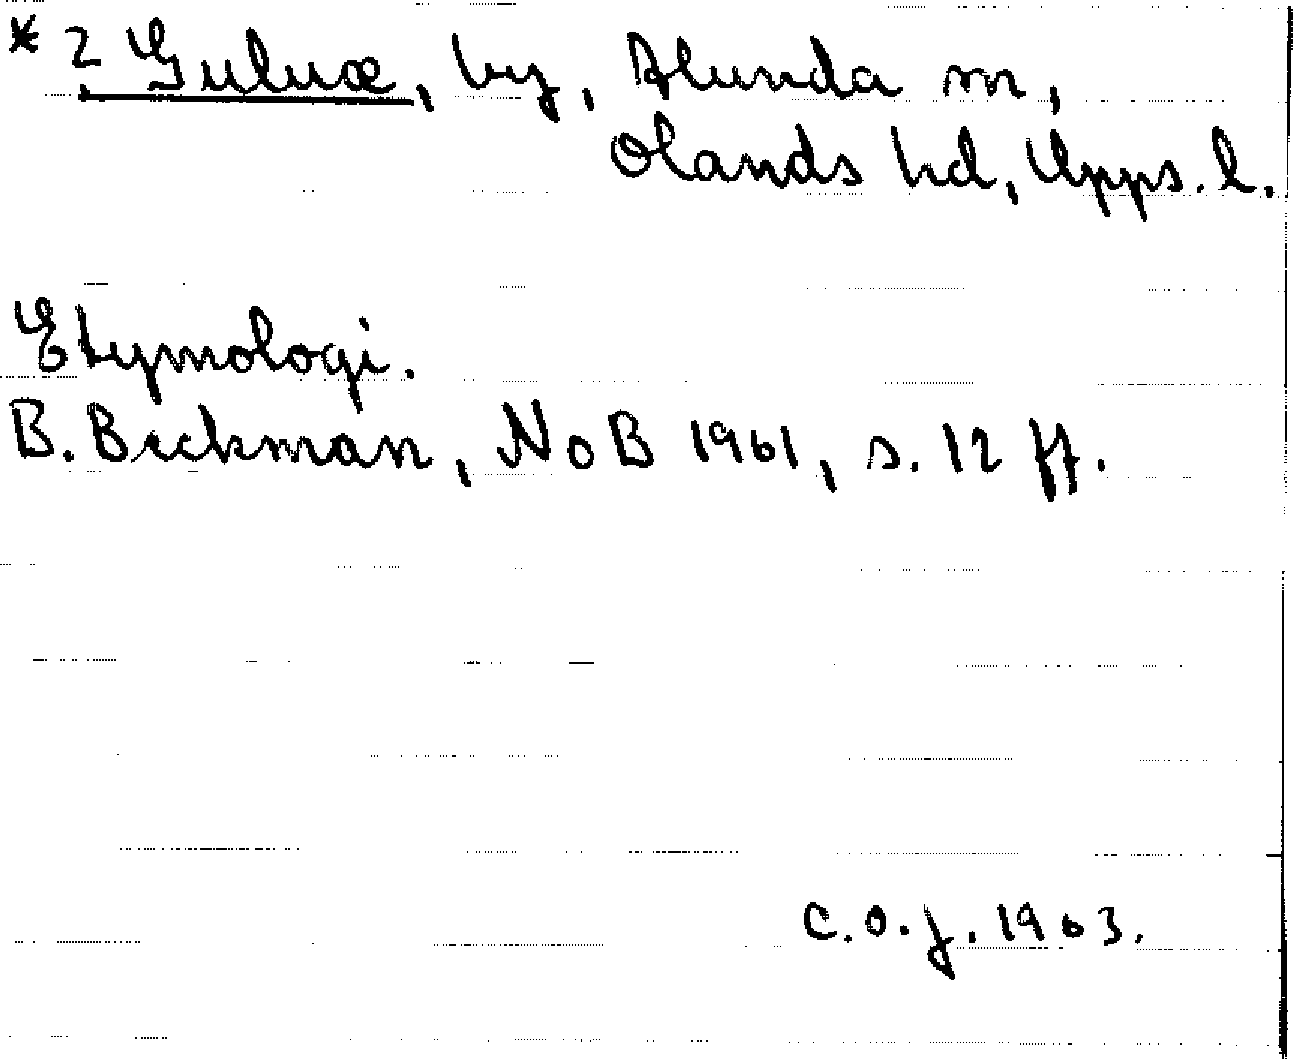 * ? Gulux, by, Alunda sn,
Olands hd, Upps. l.
Etymologi.
B. Beckman, NoB 1961, s. 12 ff.
C.O.J. 1963.